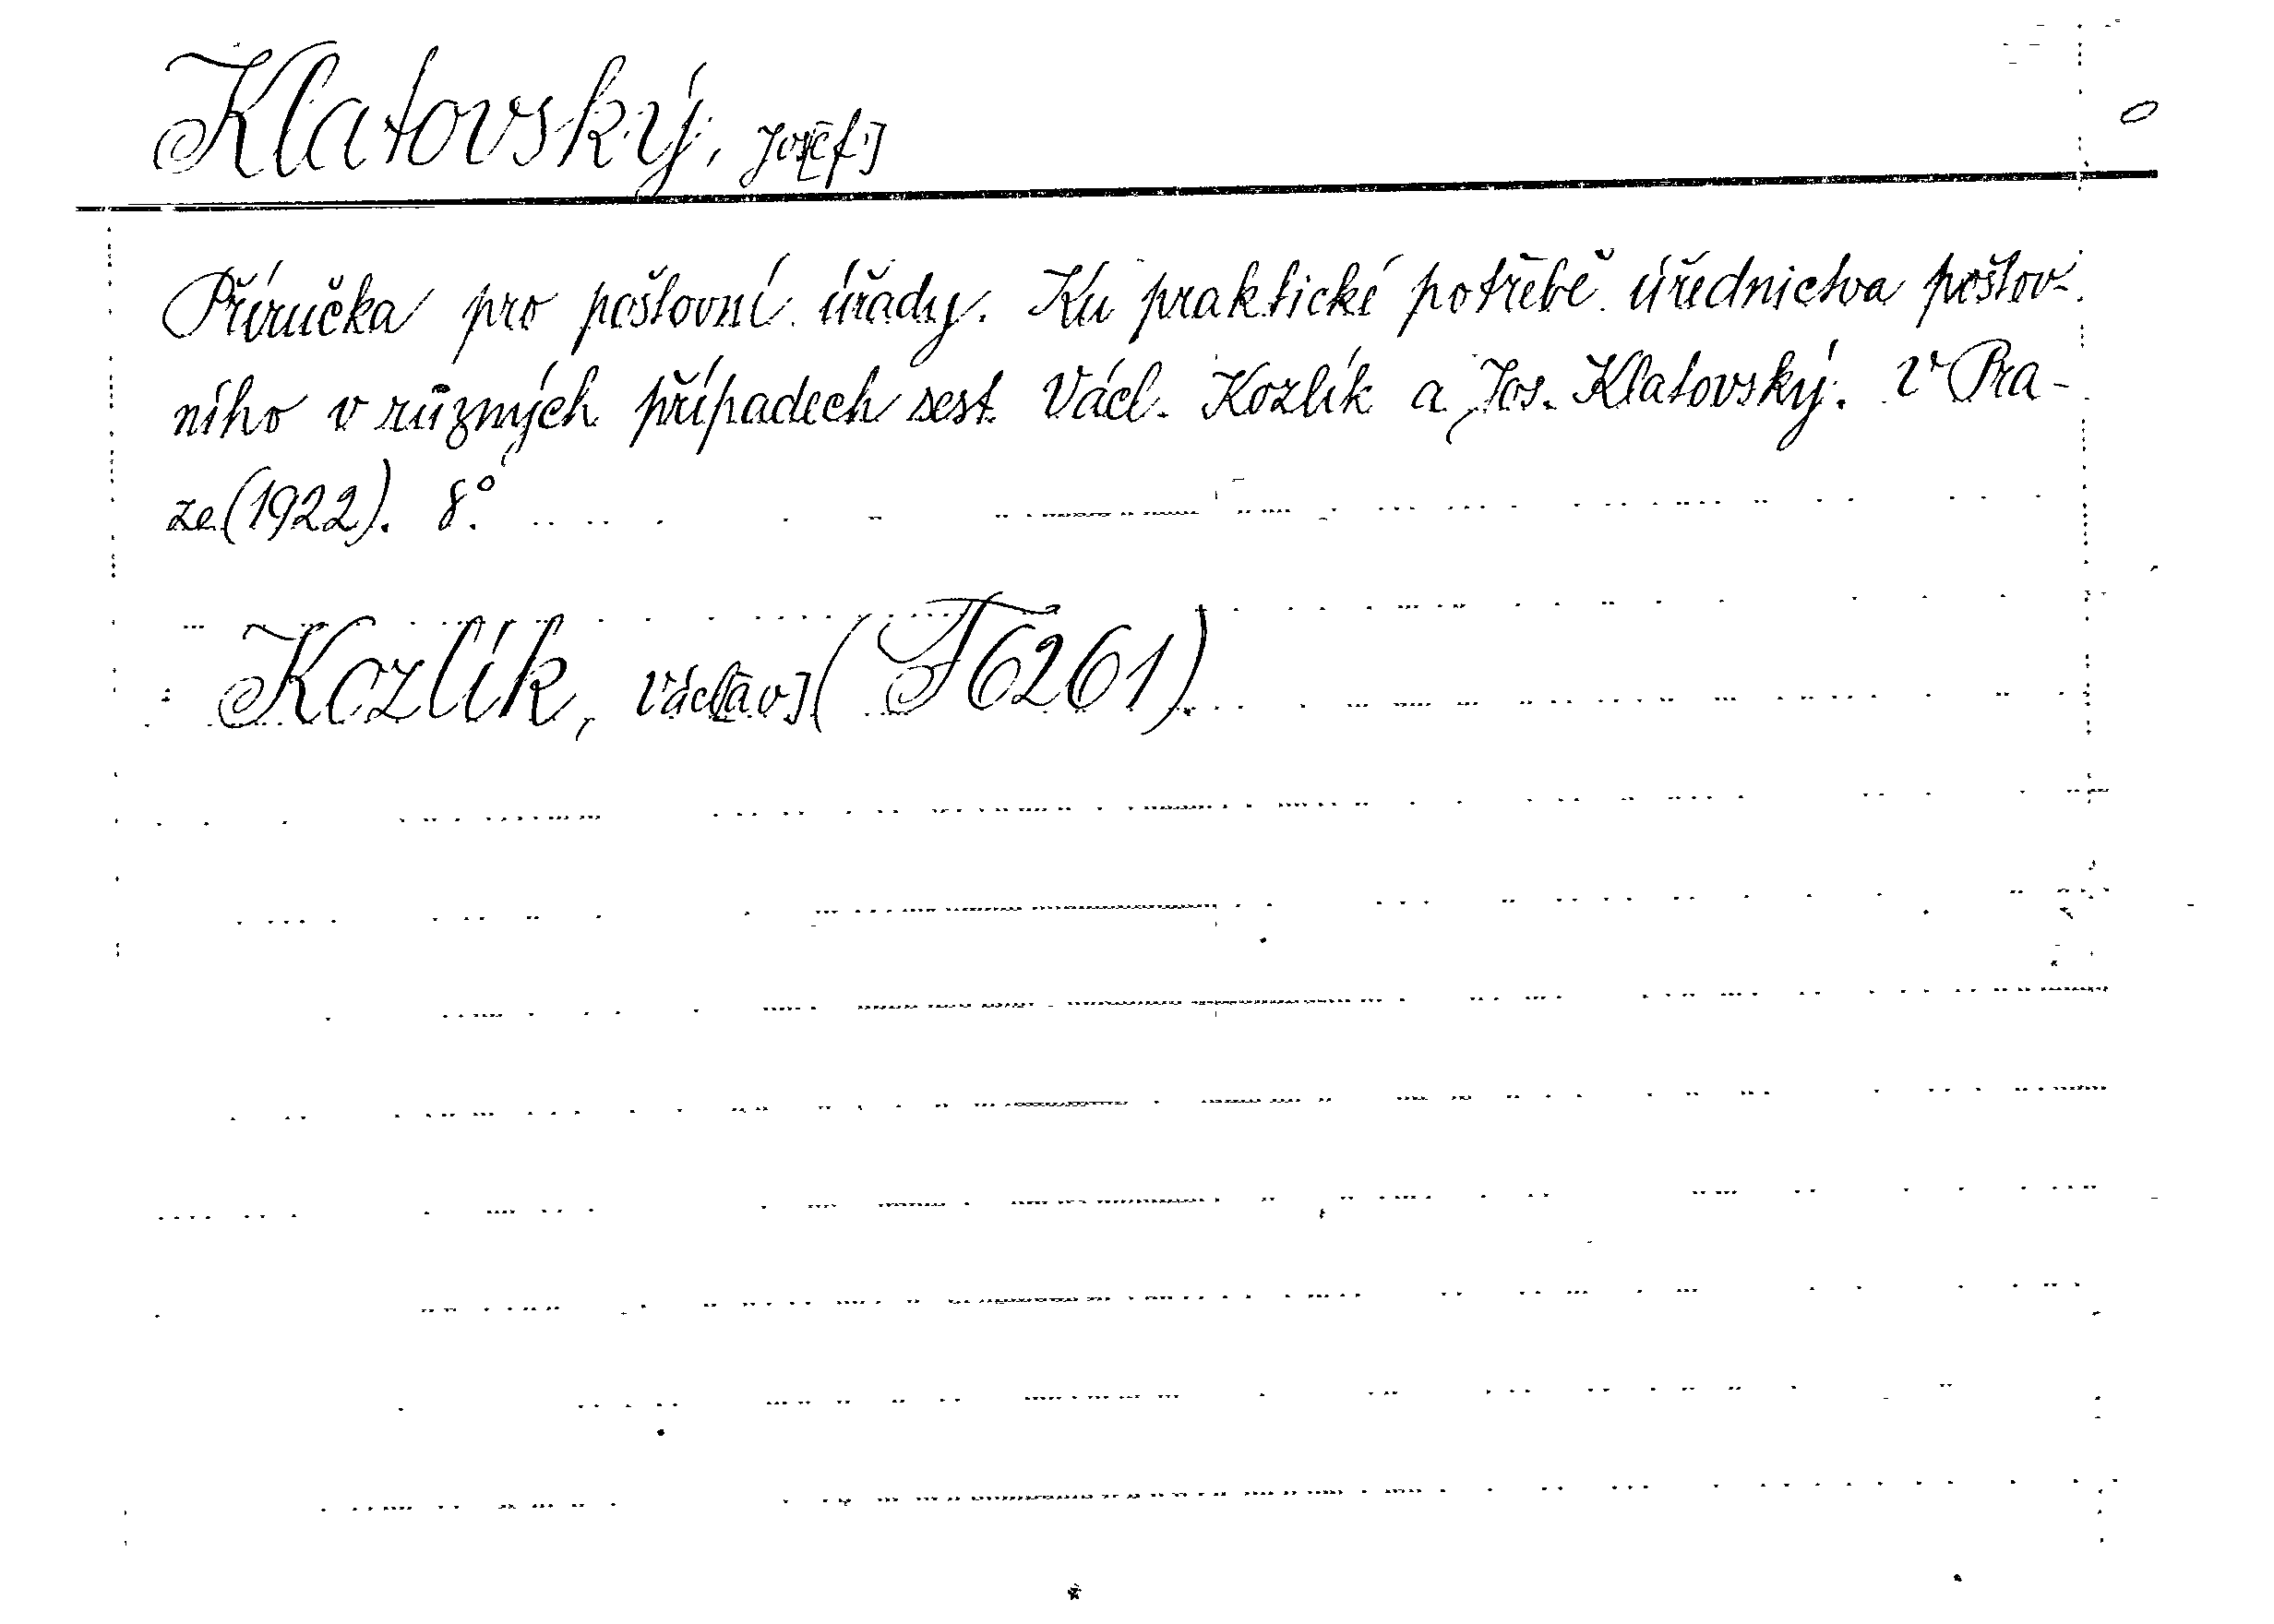 Klatovský, Jos[ef]
Příručka pro poštovní úřady. Ku praktické potřebě úřednictva poštov-
ního v různých případech sest. Václ. Kozlík a Jos. Klatovský. V Pra-
ze (1922). 8°.
Kozlík, Václ[av] (T 6261).